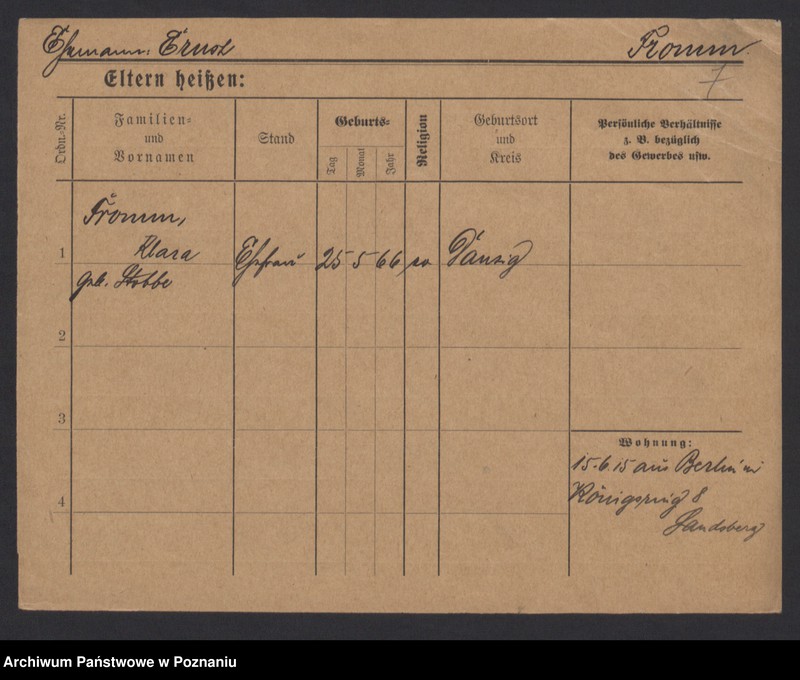 Ehemann: Ernst Fromm.
7
Eltern heißen:
Ordn.-Nr.
Familien- und Vornamen
Stand
Geburts-
Tag
Monat
Jahr
Religion
Geburtsort und Kreis
Persönliche Verhältnisse
z. B. bezüglich
des Gewerbes usw.
Fromm,
1 Klara Ehefrau 25 5 66 Danzig
geb. Stobbe
2
3
Wohnung:
15.6.15 aus Berlin in
Königsring 8
4
Landsberg
Archiwum Państwowe w Poznaniu